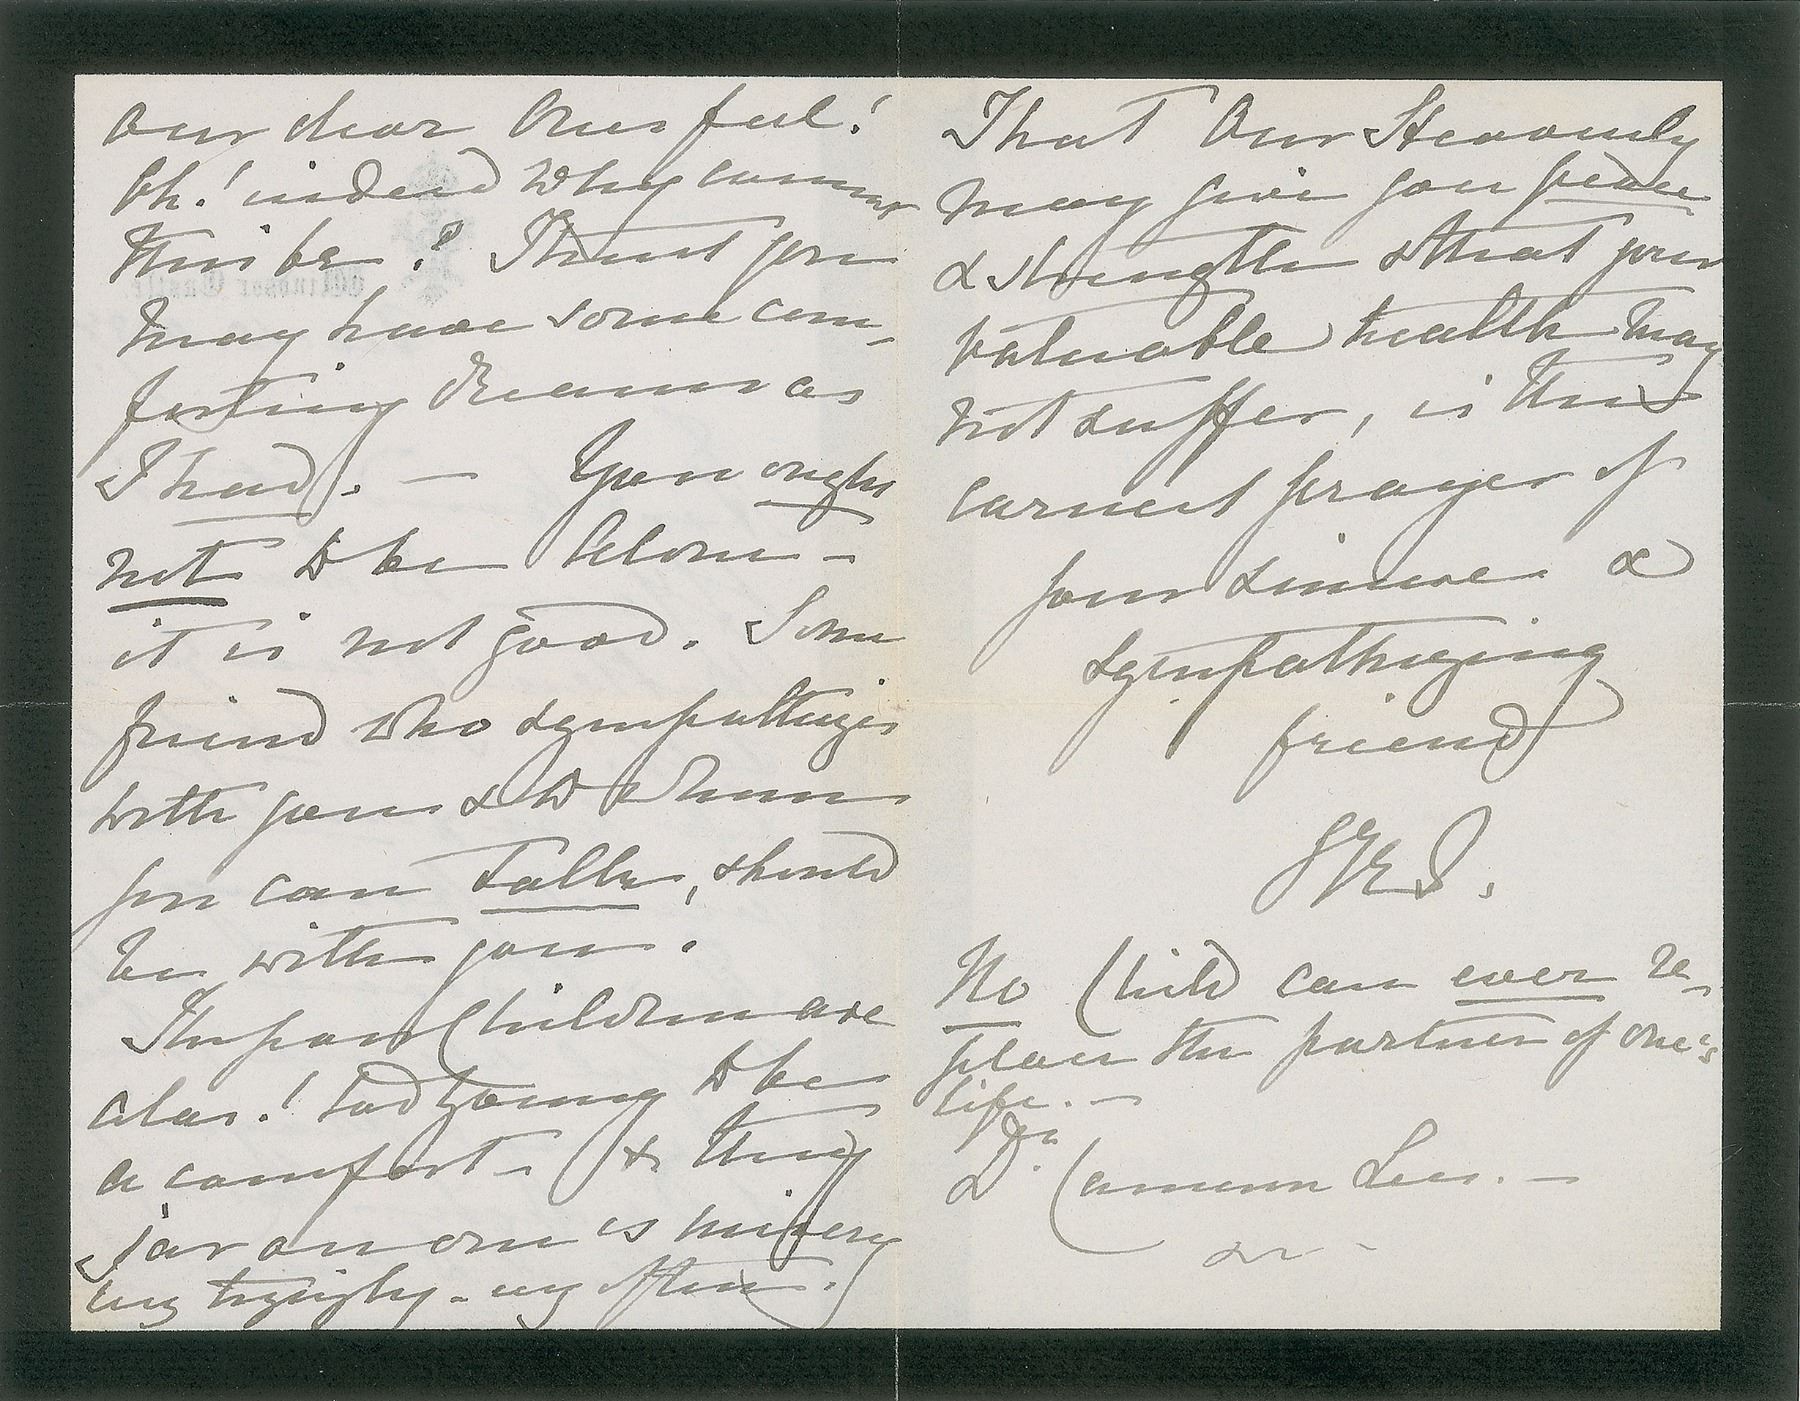 our dear Ones feel!
Oh! indeed why cannot
this be? I trust you
may have some com-
forting dreams as
I had. — You ought
not to be alone —
it is not good. Some
friend who sympathizes
with you & to whom
you can talk, should
be with you.
The poor Children are
alas! too young to be
a comfort — (& they
jar on one is misery
 — often.)
That Our Heavenly
may give you peace
& strength & that your
valuable health may
not suffer, is the
earnest prayer of
your sincere &
sympathizing
friend
VRI.
No Child can ever re-
place the partner of one's
life. —
Dr Cameron Lees. —